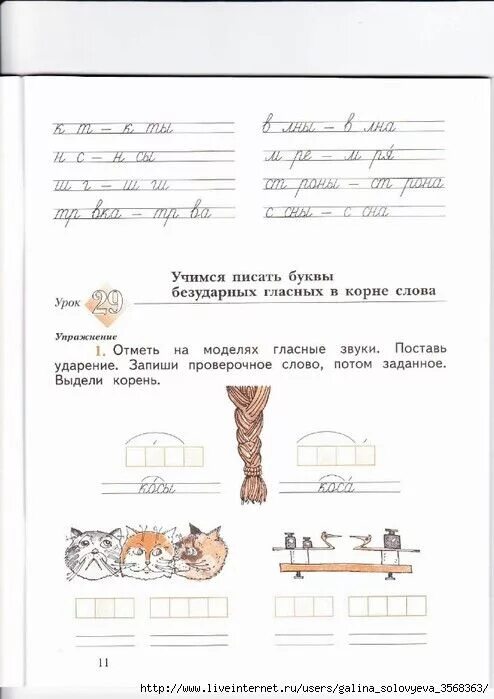 к т – к ты в лны – в лна
н с – н сы м ре – м ря́
ш г – ш ги ст роны – ст рона
тр вка – тр ва с сны – с сна
Учимся писать буквы
безударных гласных в корне слова
Урок 29
Упражнение
1. Отметь на моделях гласные звуки. Поставь
ударение. Запиши проверочное слово, потом заданное.
Выдели корень.
ко́сы коса́
11
http://www.liveinternet.ru/users/galina_solovyeva_3568363/